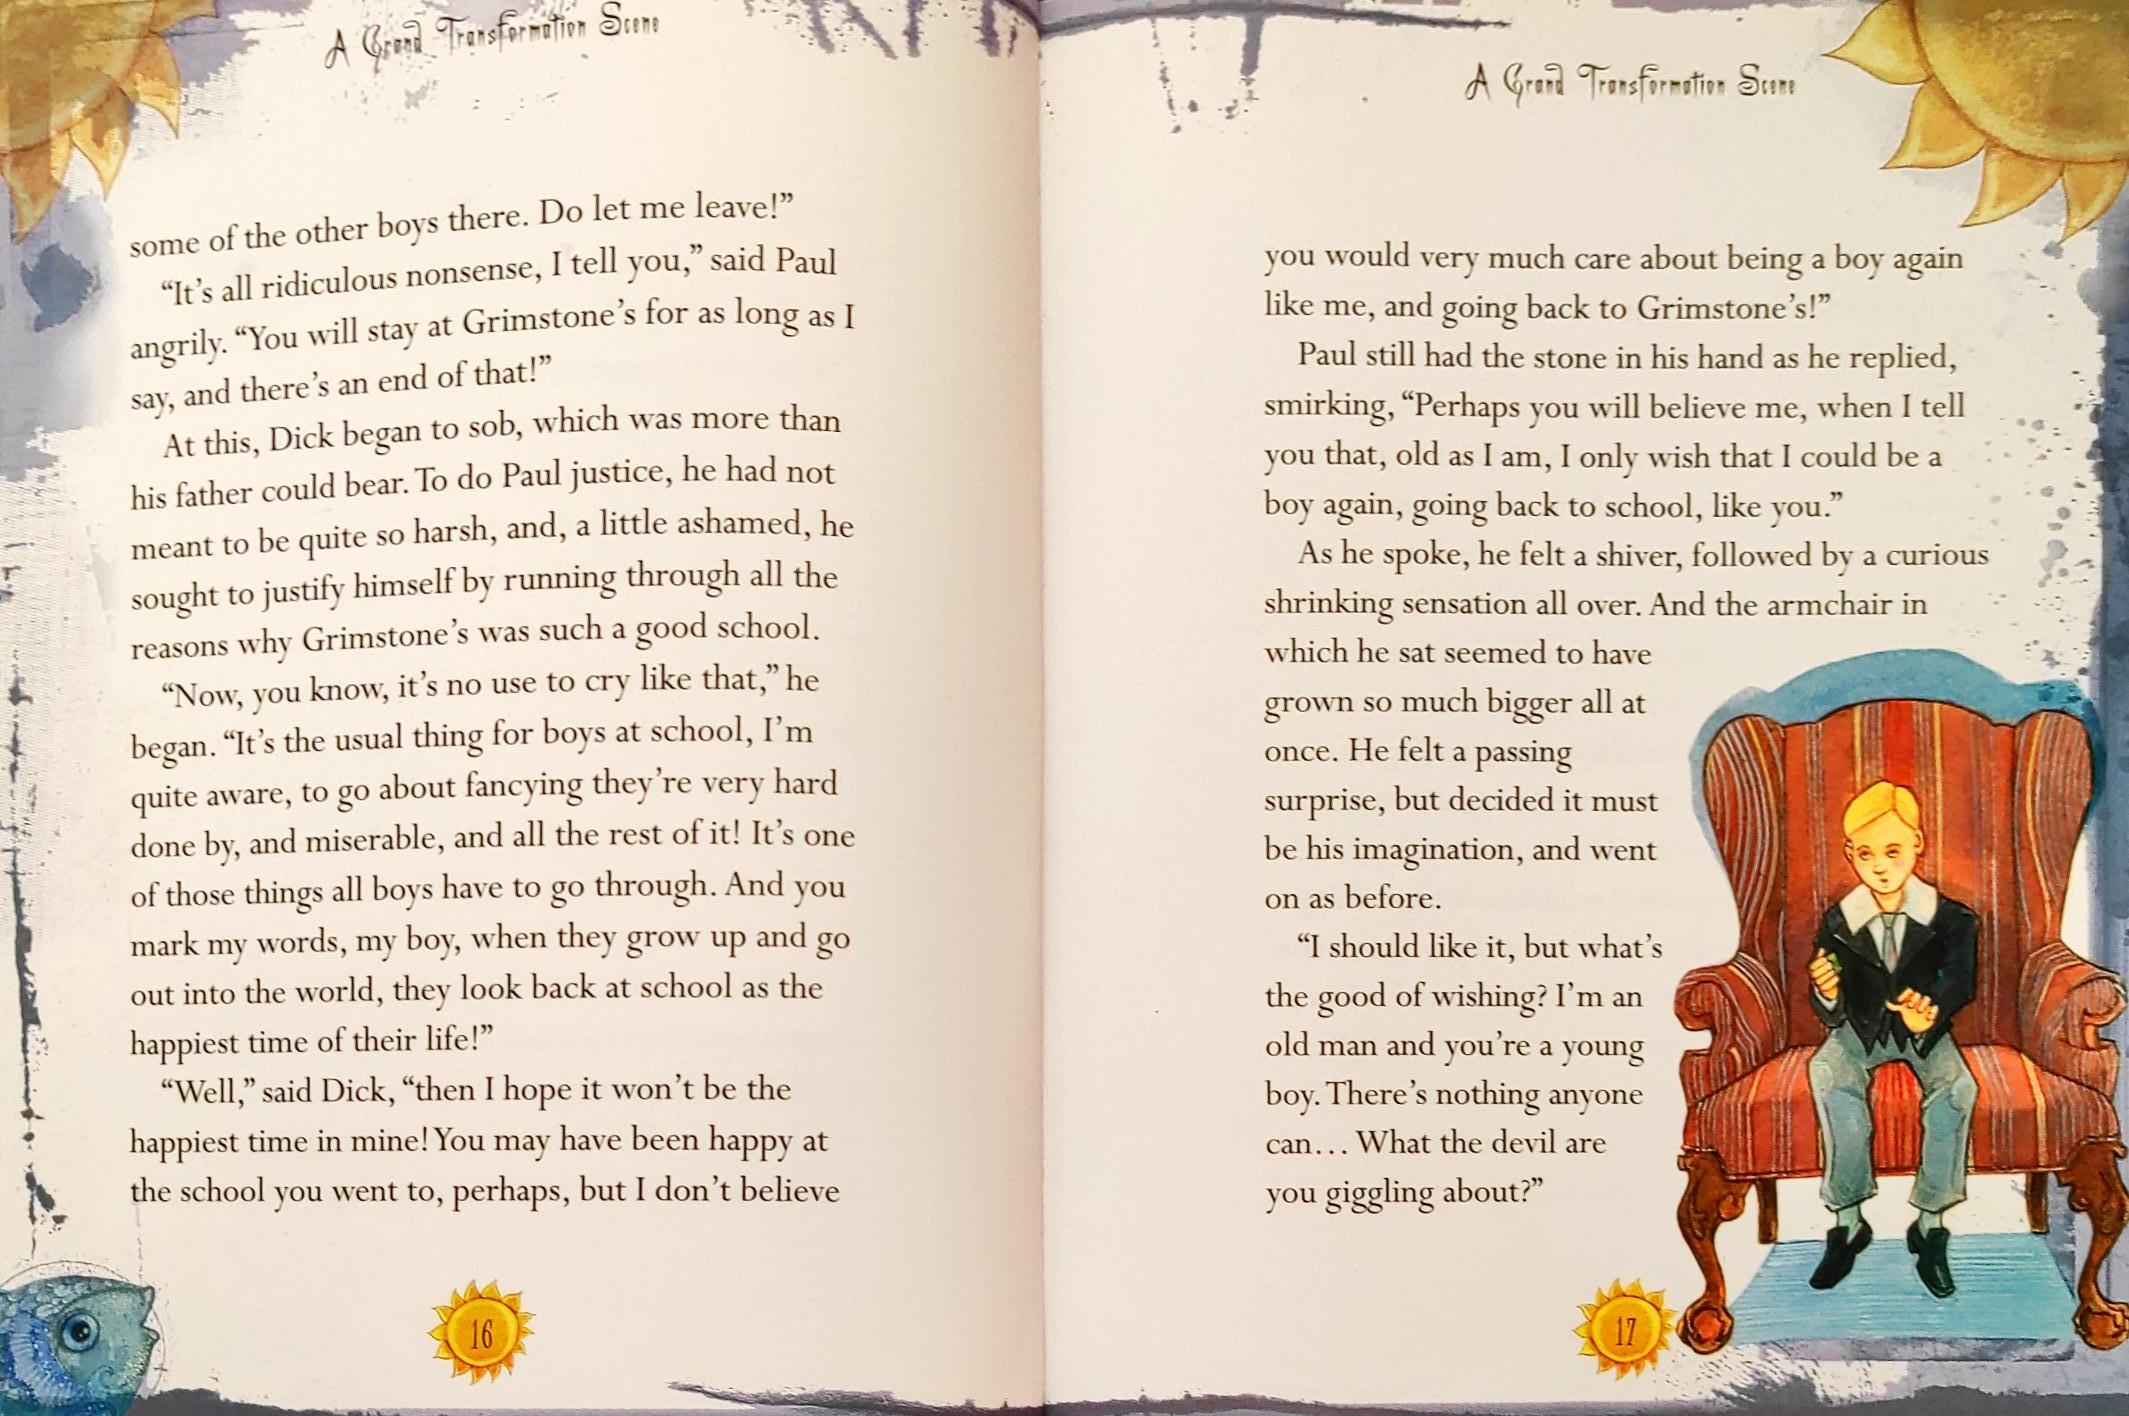 A Grand Transformation Scene
some of the other boys there. Do let me leave!”
“It’s all ridiculous nonsense, I tell you,” said Paul
angrily. “You will stay at Grimstone’s for as long as I
say, and there’s an end of that!”
At this, Dick began to sob, which was more than
his father could bear. To do Paul justice, he had not
meant to be quite so harsh, and, a little ashamed, he
sought to justify himself by running through all the
reasons why Grimstone’s was such a good school.
“Now, you know, it’s no use to cry like that,” he
began. “It’s the usual thing for boys at school, I’m
quite aware, to go about fancying they’re very hard
done by, and miserable, and all the rest of it! It’s one
of those things all boys have to go through. And you
mark my words, my boy, when they grow up and go
out into the world, they look back at school as the
happiest time of their life!”
“Well,” said Dick, “then I hope it won’t be the
happiest time in mine! You may have been happy at
the school you went to, perhaps, but I don’t believe
16
A Grand Transformation Scene
you would very much care about being a boy again
like me, and going back to Grimstone’s!”
Paul still had the stone in his hand as he replied,
smirking, “Perhaps you will believe me, when I tell
you that, old as I am, I only wish that I could be a
boy again, going back to school, like you.”
As he spoke, he felt a shiver, followed by a curious
shrinking sensation all over. And the armchair in
which he sat seemed to have
grown so much bigger all at
once. He felt a passing
surprise, but decided it must
be his imagination, and went
on as before.
“I should like it, but what’s
the good of wishing? I’m an
old man and you’re a young
boy. There’s nothing anyone
can… What the devil are
you giggling about?”
17